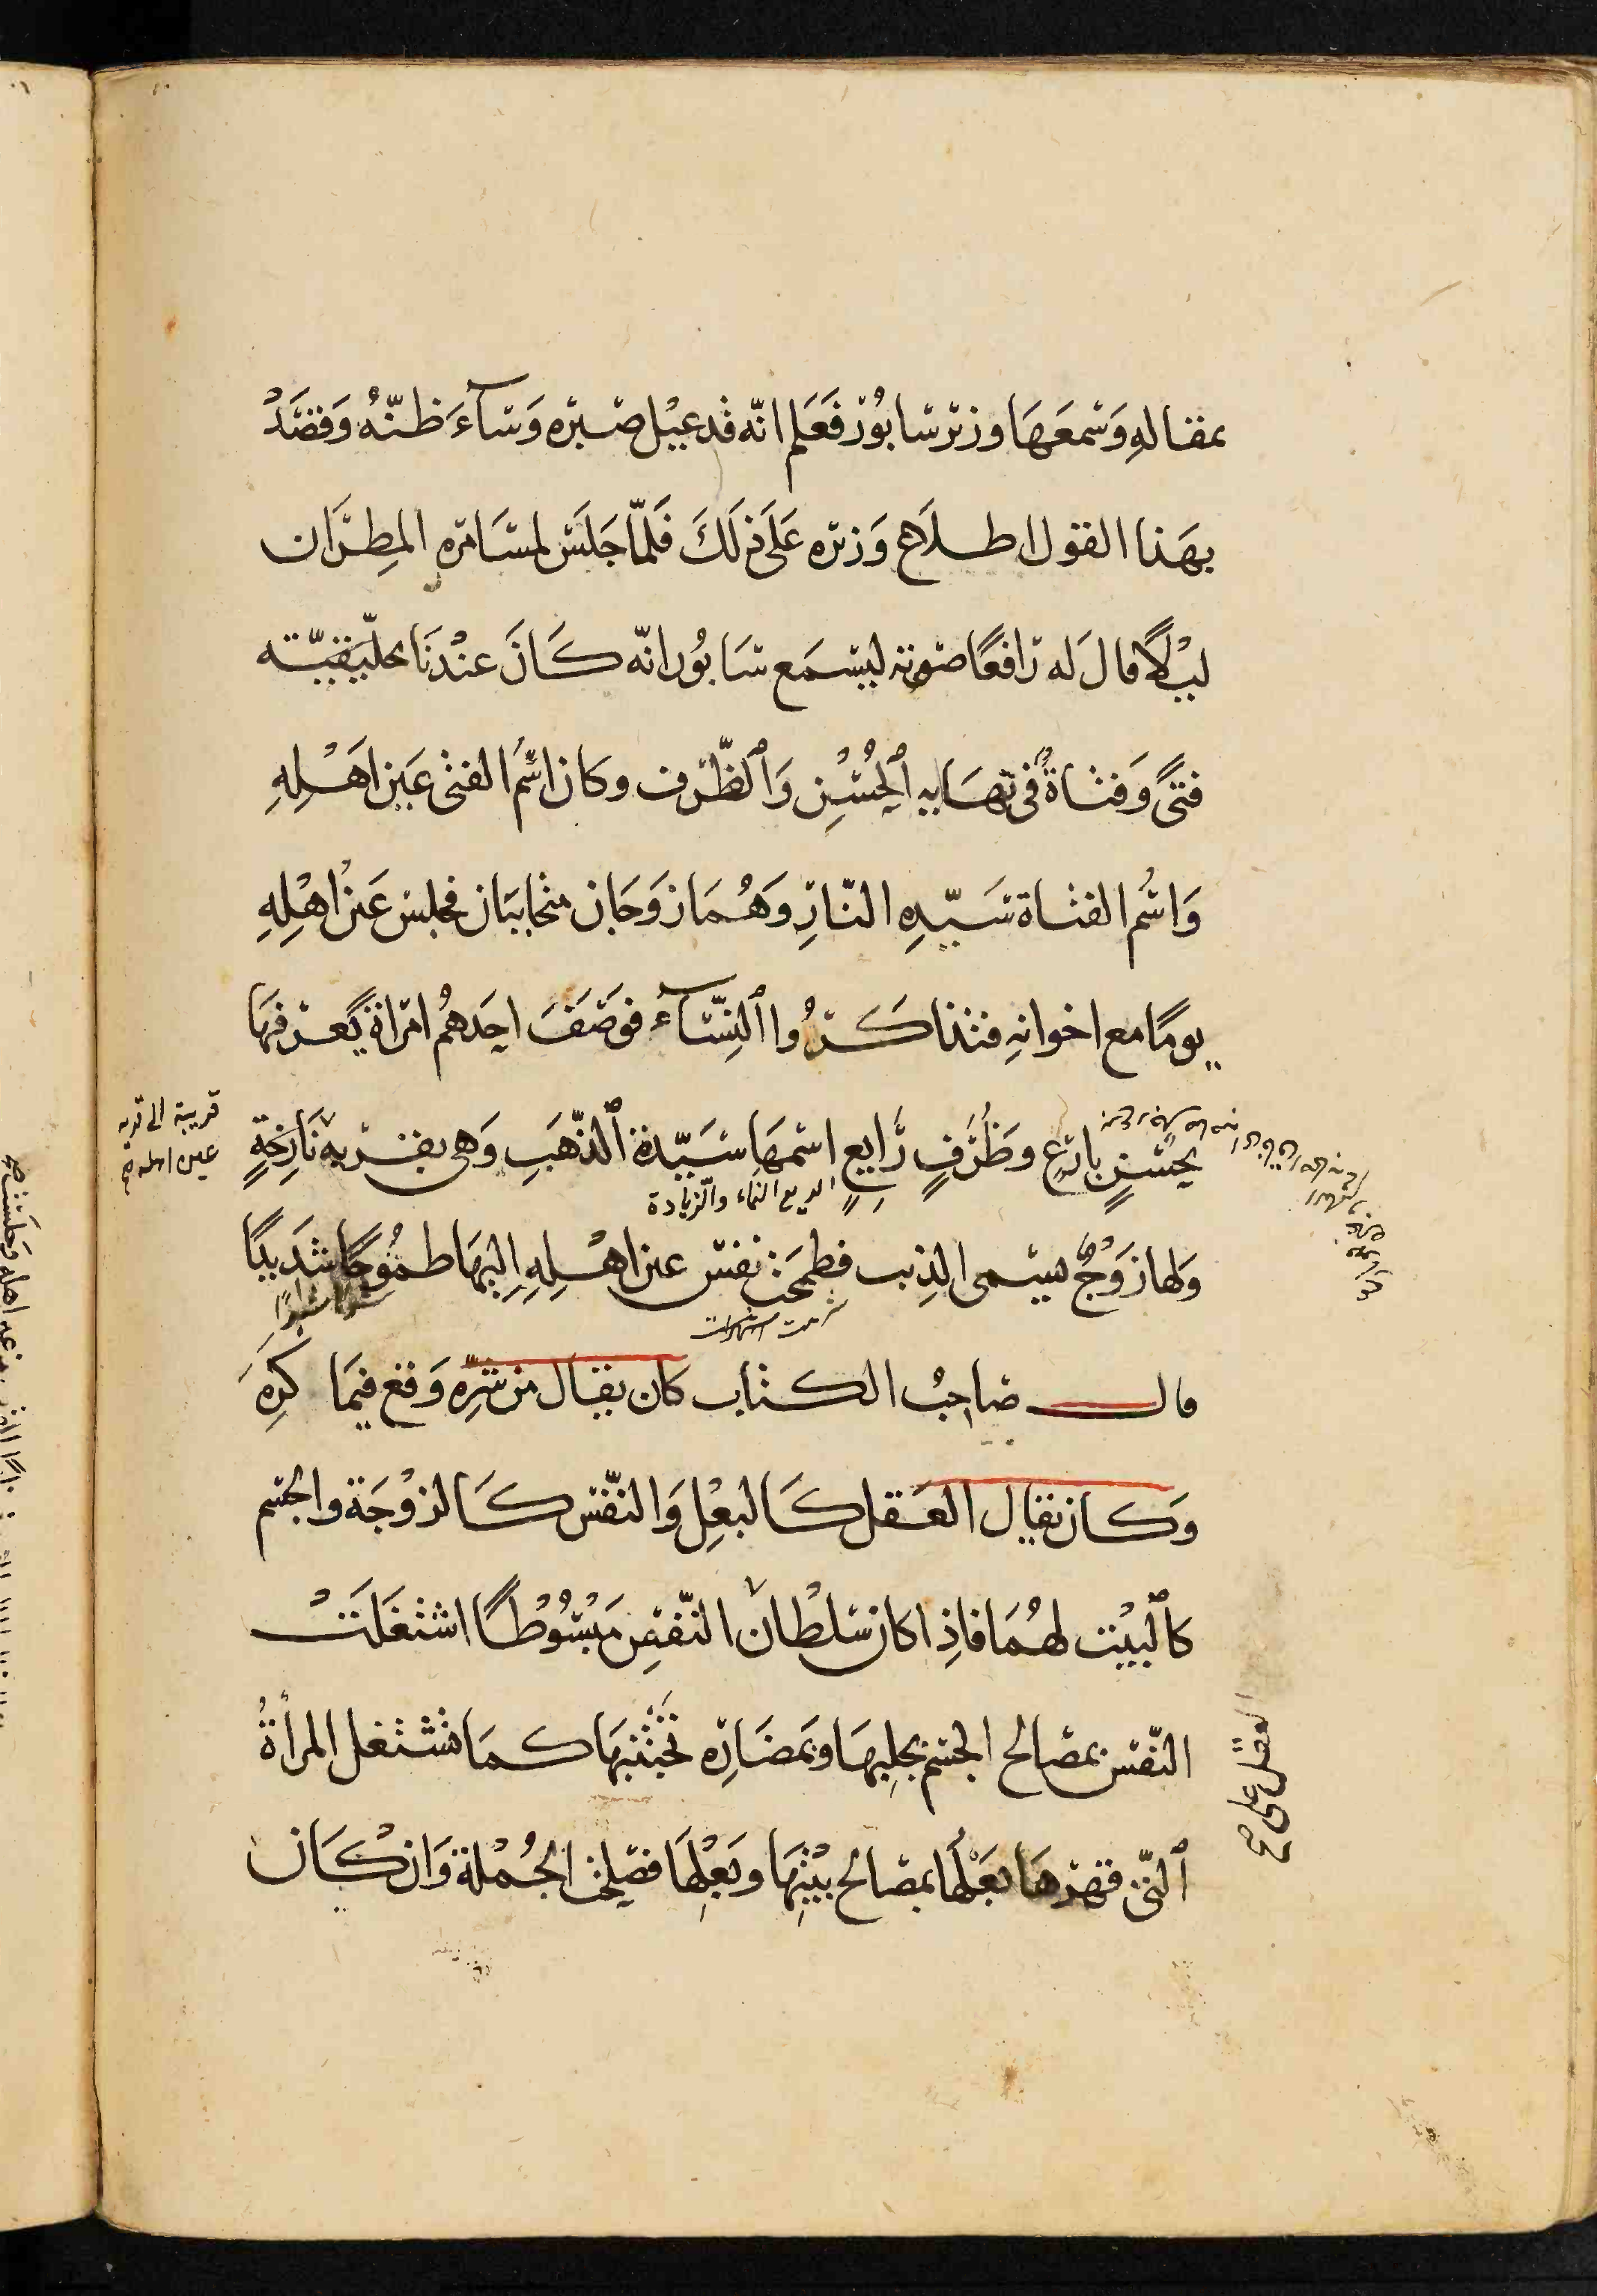 بمقاله وَسَمعَهَا وزير سَابُور فَعَلم انّه قد عِيْل صَبره وَسَآءَ ظنّهُ وَقصَدَ
بهَذا القول اطلاع وَزيره عَلَى ذلَكَ فَلَمّا جَلَسَ لمسَامَرةِ المطِرَان
ليْلاً قالَ له رَافعًا صَوته ليسْمَع سَابُور انّه كَانَ عنْدنَا بحلَيقيّه
فتىً وَفتَاةٌ في نهَايه ٱلحُسْنِ وَٱلظّرْف وكان اسْمُ الفتى عَين اهْلِهِ
وَاسْم الفتاة سَيّدةِ النّارِ وَهُمَا زَوجَان متحَابيَان فجلسَ عَين اهْلِهِ
يومًا مع اخوانهِ فتذاكَرُوا ٱلنِّسَآءَ فوَصَفَ احَدهُم امْرَاةً يَعرفهَا
بحُسْنٍ بارعٍ وَظَرْفٍ رَايعٍ اسْمهَا سَيّدة ٱلذّهَبِ وَهى بقريه نَازِحَةٍ
قريبة الى قريه
عين اهله صح
الريع النماء والزيادة
وَلها زَوْجٌ يسَمى الذِيب فطمَحَت نفسَ عين اهْلِهِ اِليهَا طمُوحًا شَديدًا
قالـ صَاحِبُ الكتاب كان يقال من شَرِهَ وَقع فيمَا كَرِهَ
وَكان يقال العَقل كَالبعْلِ وَالنفْس كَالزوْجَة والجسَم
كٱلبيْت لهُمَا فاذِا كان سُلْطان النّفسِ مَبْسُوْطًا اشتغَلَتْ
النّفس بمصَالح الجسَم بجلِبهَا وَبمَضَارّهِ تجَنّبهَا كمَا تشتغل المرأةُ
ٱلتي قهرَهَا بَعْلُهَا بمصَالح بيْتهَا وبَعْلِهَا فصَلحت الجُمْلة وَان كَان
العقل على صح